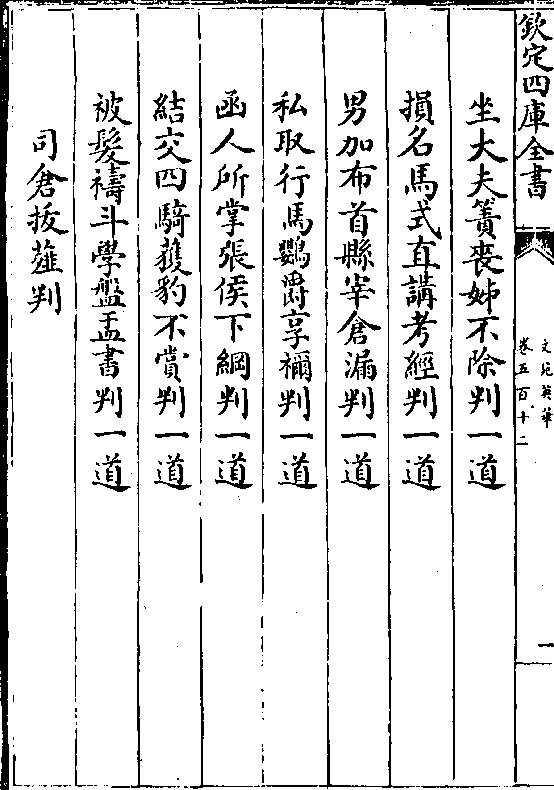 欽定四庫全書
文苑英華
卷五百十二
一
坐大夫簀喪姊不除判一道
損名馬式直講考經判一道
男加布首縣宰倉漏判一道
私取行馬鸚爵享禰判一道
函人所掌張侯下綱判一道
結交四騎獲豹不賞判一道
被髮禱斗學盤盂書判一道
司倉拔薤判